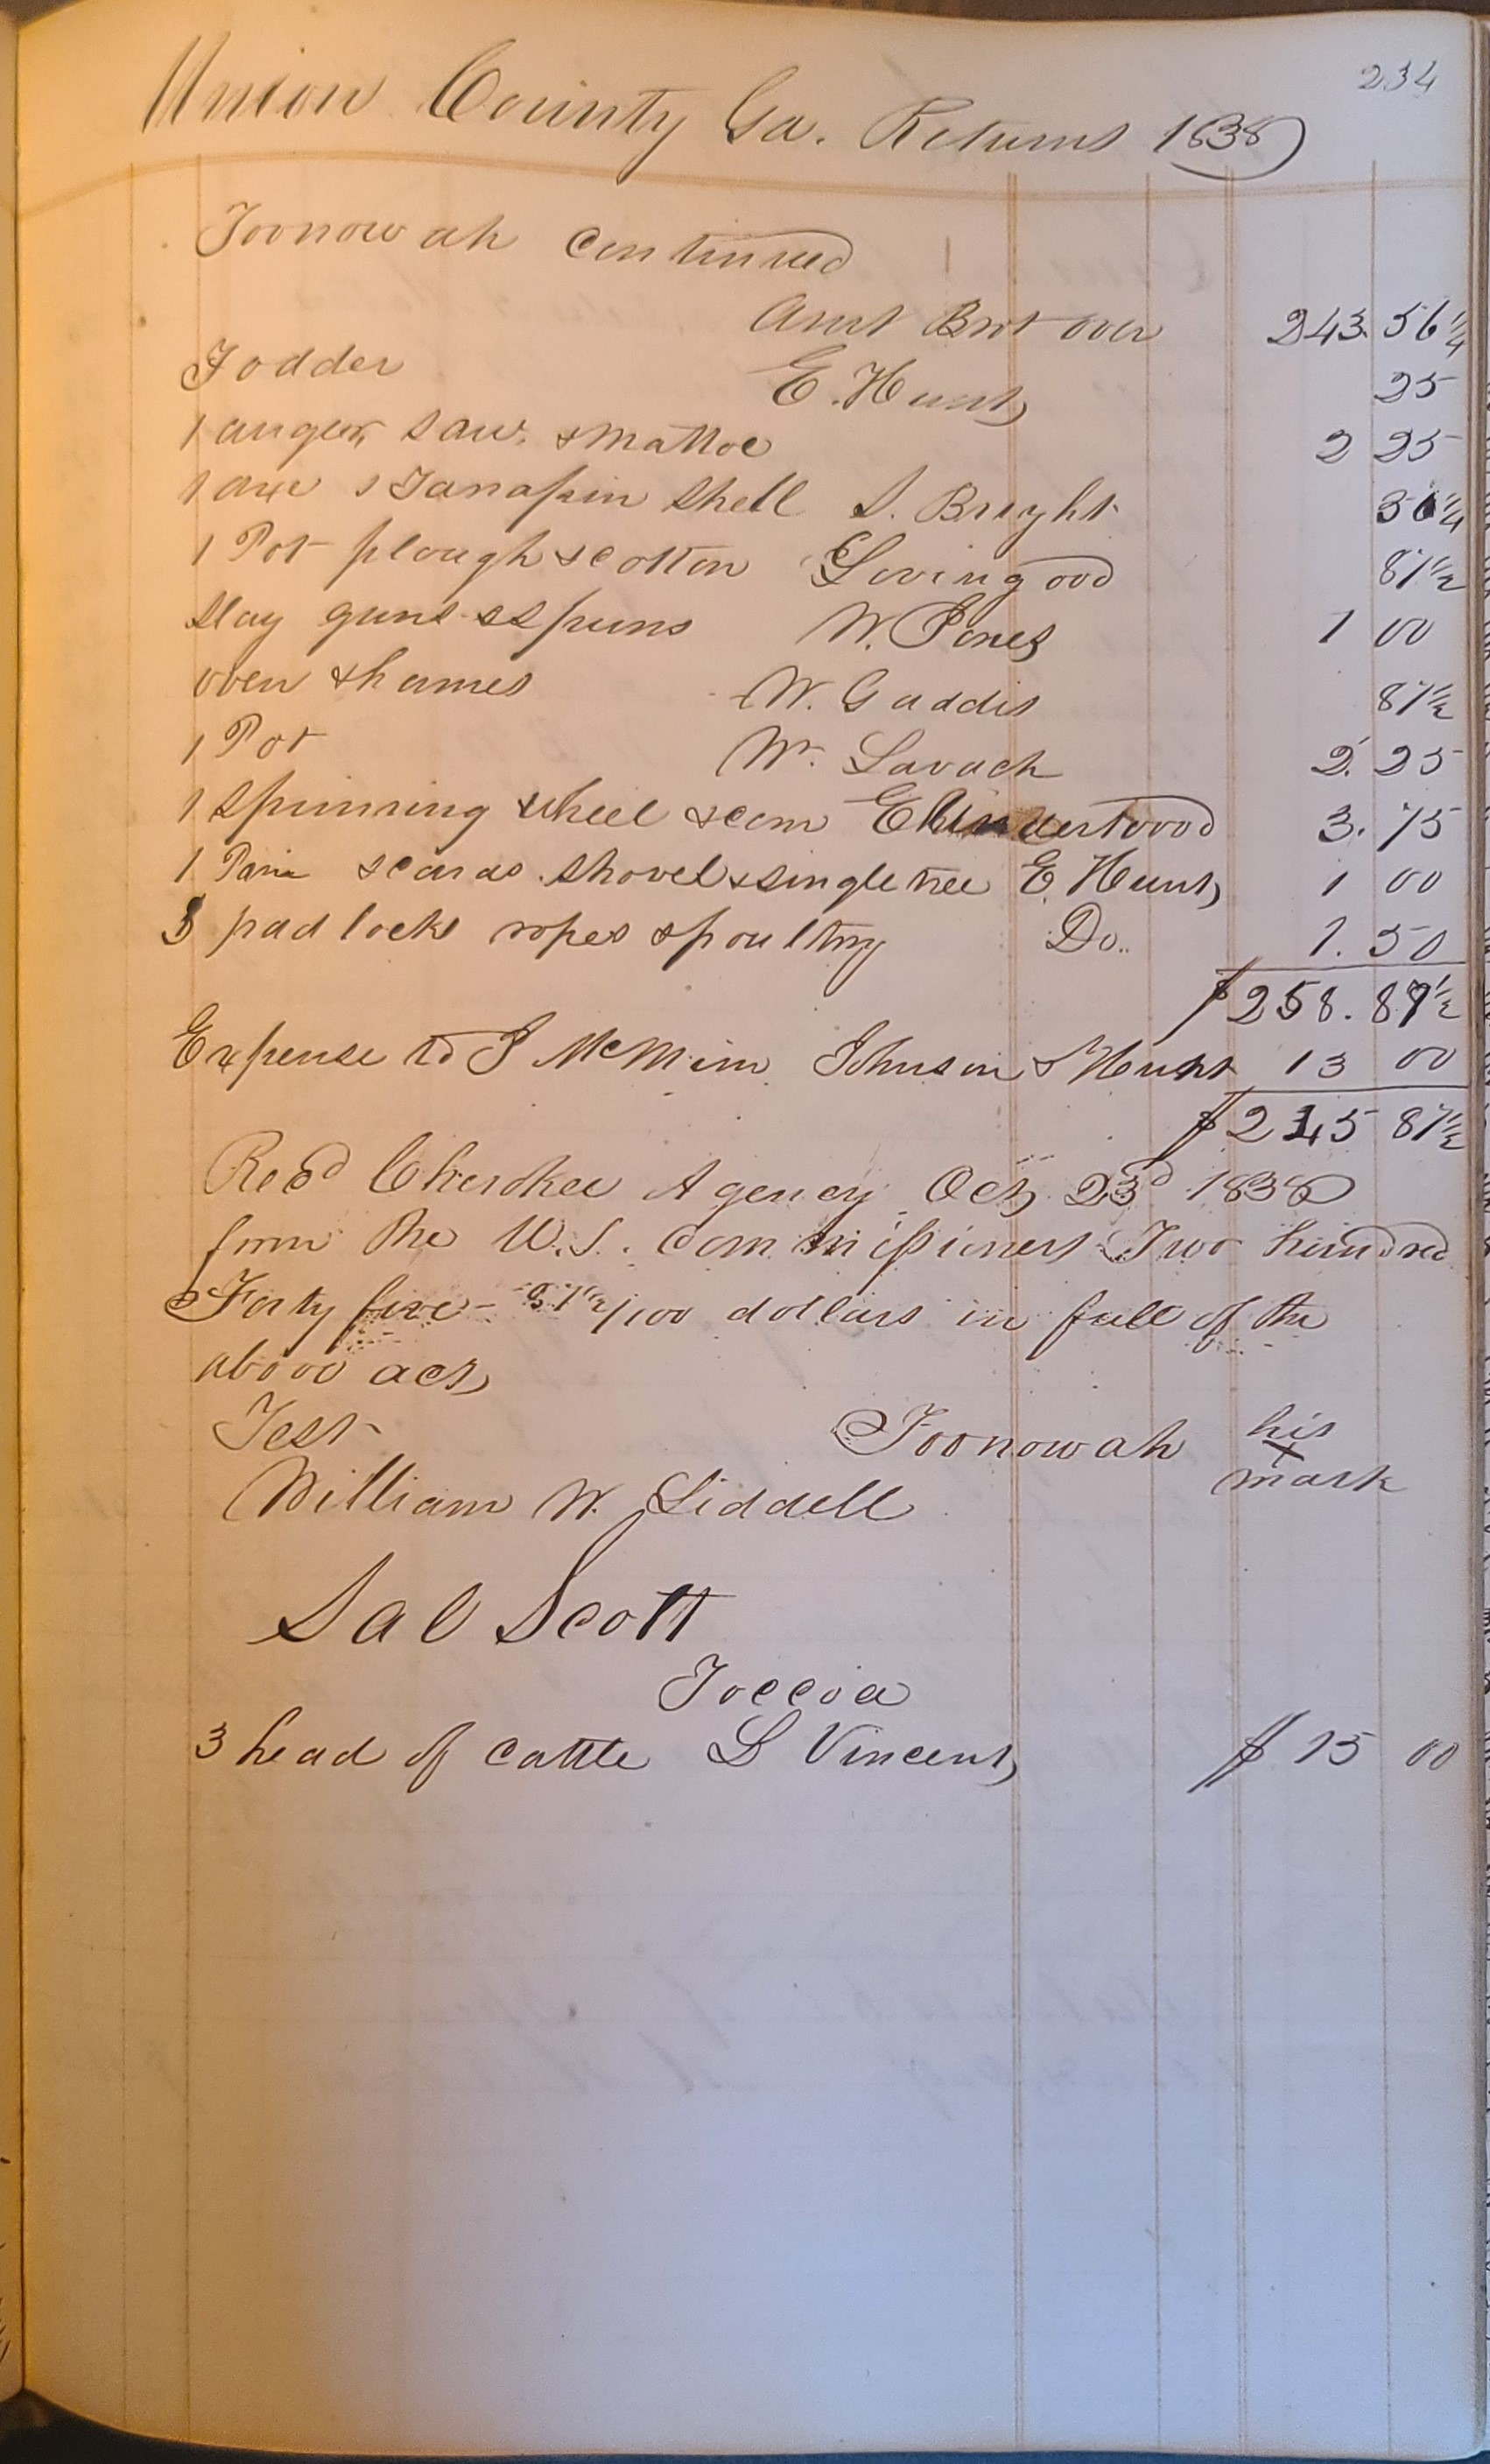 234
Union County Ga. Returns 1838
Toonowah Continued
Amt Brot over 243. 56 1/4
Fodder E. Hunt 25
1 auger, saw. & Mattoc 2 25
1 axe & Tarrapin Shell S. Bright 56 1/4
1 Pot plough & cotton Lovingood 87 1/2
Slay guns & spuns W. Jones 1 00
oven & hames W. Gaddis 87 1/2
1 Pot Wm Lavach 2. 25
1 Spinning wheel & com E Underwood 3. 75
1 Pair & cards. Shovel & singletree E. Hunt 1 00
3 pad locks ropes & poultry Do.. 1. 50
$258. 87 1/2
Expense to J McMinn Johnson & Hunt 13 00
$245 87 1/2
Recd Cherokee Agency Oct 23d 1838
from the U.S. Commissioners Two hundred
& Forty five - 87 1/2/100 dollars in full of the
above act
Test
Toonowah his
x
mark
William W. Liddell
Sal Scott
Toccoa
3 head of Cattle L Vincent $ 15 00